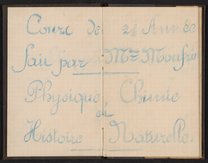 Cours de 2e Année
fait par Mr Maufroi
Physique Chimie
et
Histoire Naturelle.